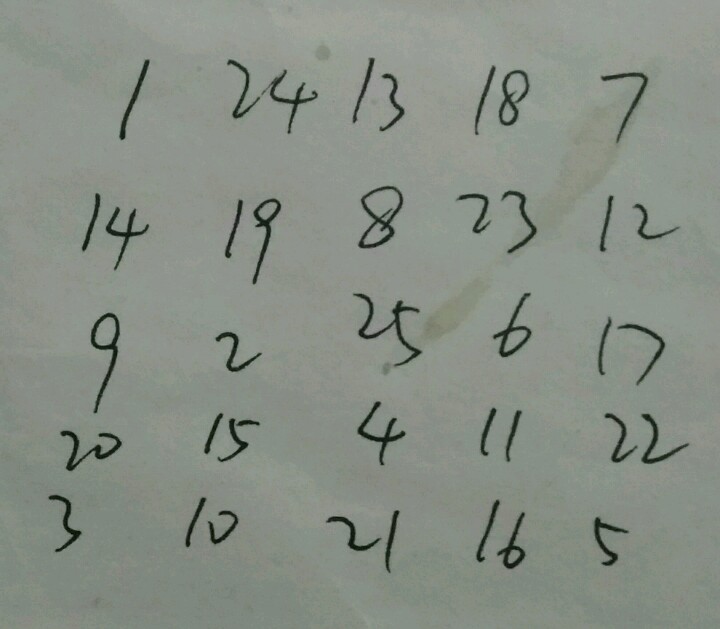 1 24 13 18 7
14 19 8 23 12
9 2 25 6 17
20 15 4 11 22
3 10 21 16 5